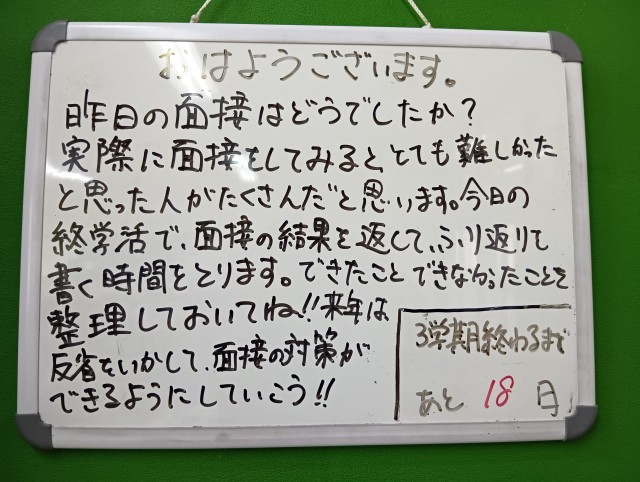 おはようございます。
昨日の面接はどうでしたか?
実際に面接をしてみると、とても難しかった
と思った人がたくさんだと思います。今日の
終学活で、面接の結果を返して、ふり返りて
書く時間をとります。できたことできなかったことを
整理しておいてね!!来年は
反省をいかして、面接の対策が
できるようにしていこう!!
3学期終わるまで
あと 18 日